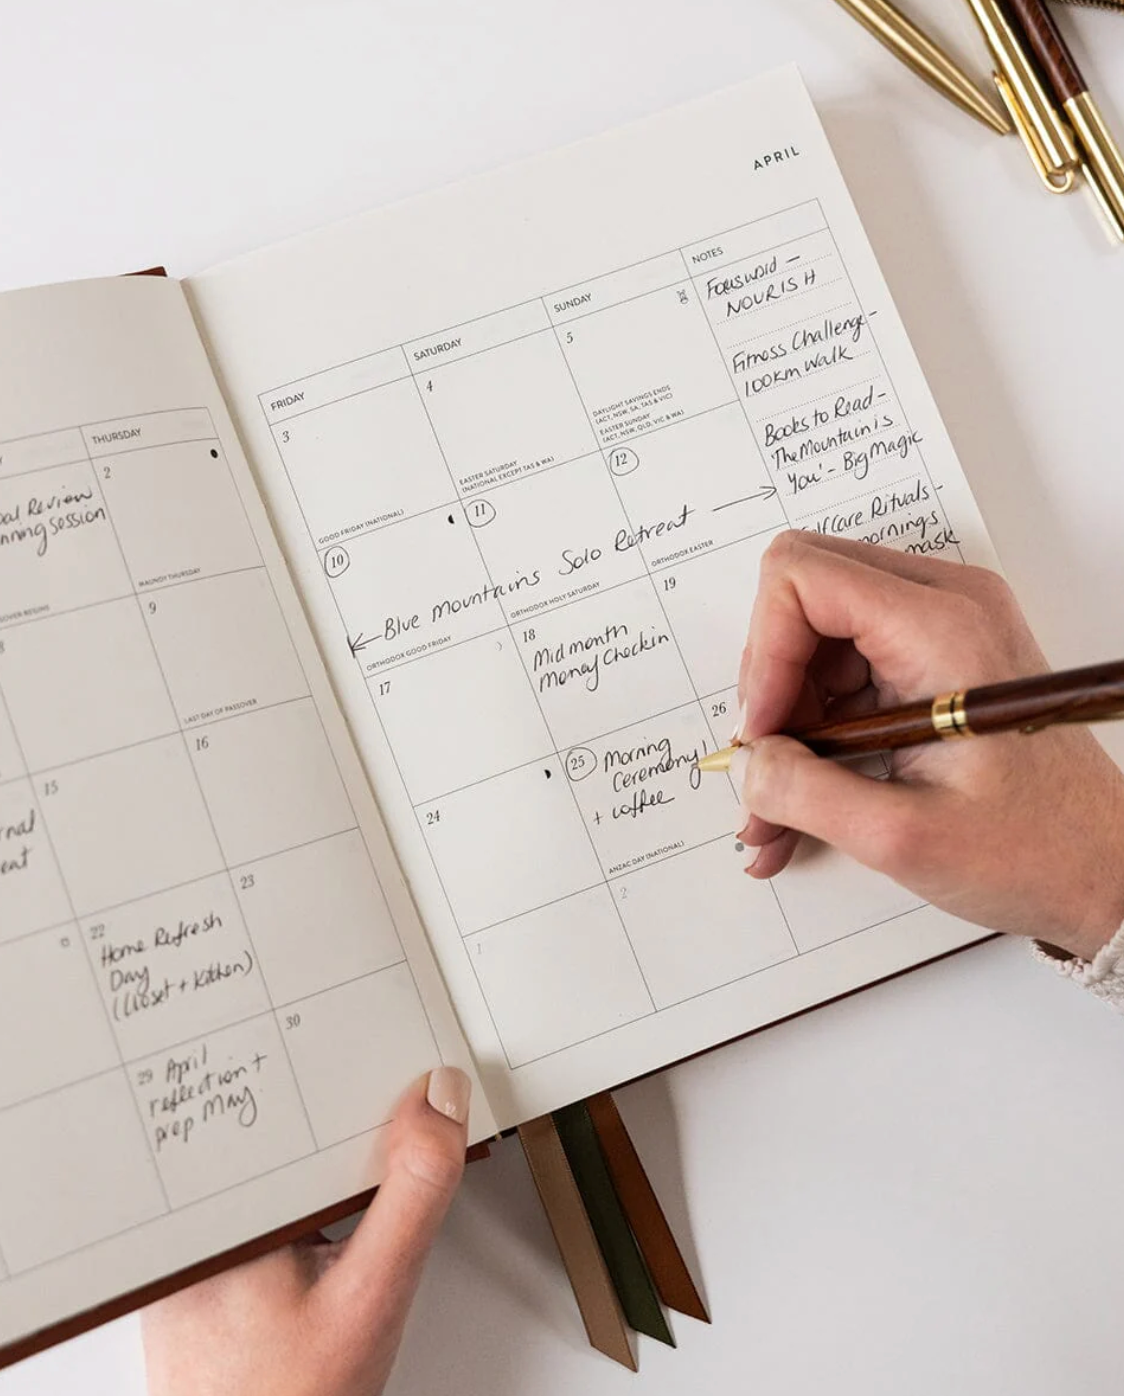 THURSDAY
2
Review
session
MAUNDY THURSDAY
9
LAST DAY OF PASSOVER
15
16
22
Home Refresh
Day
(Closet + Kitchen)
23
29 April
reflection +
prep May.
30
APRIL
FRIDAY
SATURDAY
SUNDAY
NOTES
3
GOOD FRIDAY (NATIONAL)
4
EASTER SATURDAY
(NATIONAL EXCEPT TAS & WA)
5
DAYLIGHT SAVINGS ENDS
(ACT, NSW, SA, TAS & VIC)
EASTER SUNDAY
(ACT, NSW, QLD, VIC & WA)
10
11
12
Blue Mountains Solo Retreat
ORTHODOX GOOD FRIDAY
ORTHODOX HOLY SATURDAY
ORTHODOX EASTER
17
18
Mid month
Money Checkin
19
24
25
Morning
Ceremony!
+ coffee
ANZAC DAY (NATIONAL)
26
1
2
NOURISH
Fitness Challenge -
100km walk
Books to Read -
The Mountain is
You' - Big Magic
Care Rituals -
mornings
mask